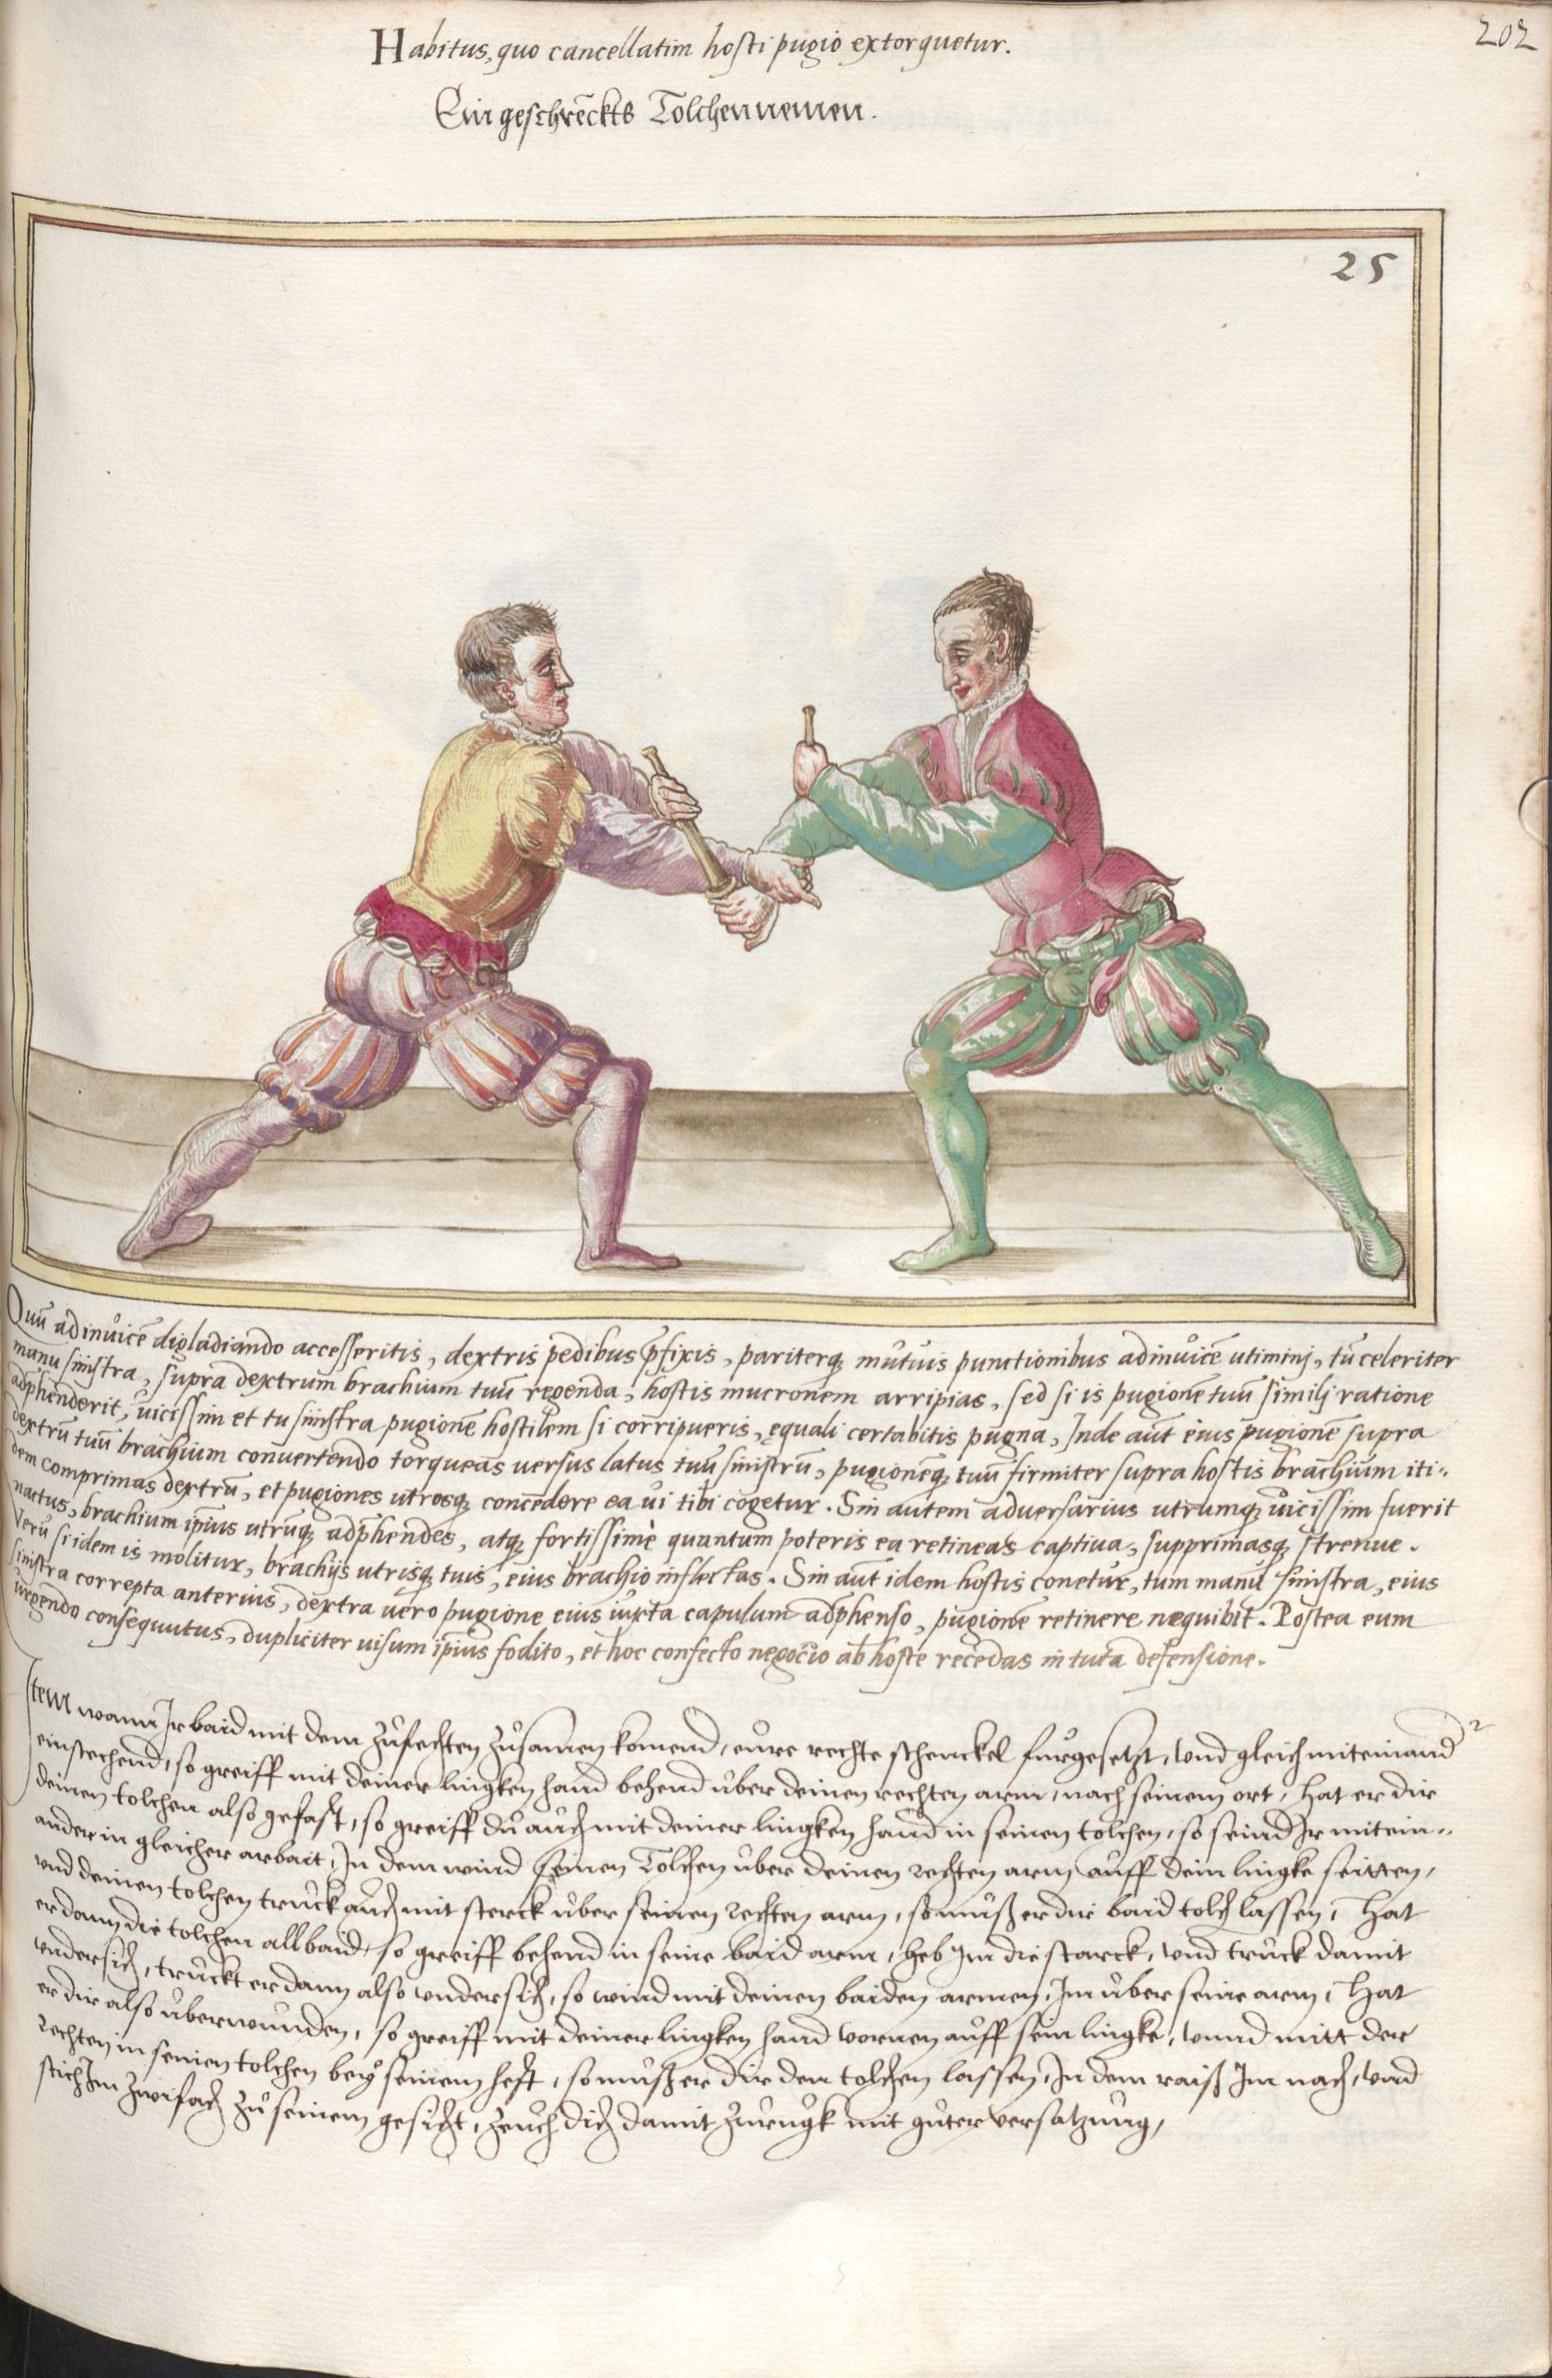 202
Habitus, quo cancellatim hosti pugio extorquetur.
Ein geschrēckts Tolchennemen.
25
Quū ad inuicē digladiando accesseritis, dextris pedibus p̄fixis, pariterq; mutuis punctionibus ad inuicē utimini, tū celeriter
manu sinistra, supra dextrum brachium tuū regenda, hostis mucronem arripias, sed si is pugionē tuū simili ratione
adphenderit, uicissim et tu sinistra pugionē hostilem si corripueris, ęquali certabitis pugna, Inde aūt eius pugionē supra
dextrū tuū brachium conuertendo torqueas uersus latus tuū sinistrū, pugionēq; tuū firmiter supra hostis brachium iti-,
dem comprimas dextrū, et pugiones utrosq; concedere ea ui tibi cogetur. Sin autem aduersarius utrumq; uicissim fuerit
nactus, brachium ip̄ius utrūq; adp̄hendes, atq; fortissimè quantum poteris ea retineas captiua, supprimasq; strenue.
Verū si idem is molitur, brachijs utrisq; tuis, eius brachio inflectas. Sin aūt idem hostis conetur, tum manu sinistra, eius
sinistra correpta anterius, dextra uero pugione eius iuxta capulum adp̄henso, pugionē retinere nequibit. Postea eum
urgendo consequutus, dupliciter uisum ip̄ius fodito, et hoc confecto negocio ab hoste recedas in tuta defensione.
Item wann Ir baid mit dem zůfechten zůsamen komend, eure rechte schenckel furgesetzt, vnd gleich miteinand
einstechend, so greiff mit deiner lingken hand behend über deinen rechten arm, nach seinem ort, hat er dir
deinen tolchen also gefast, so greiff du auch mit deiner lingken hand in seinen tolchen, so seind Ir mitein-,
ander in gleicher arbait, In dem wind seinen Tolchen über deinen rechten arm auff dein lingke seitten,
vnd deinen tolchen truck auch mit sterck über seinen rechten arm, so muß er dir baid tolch lassen, Hat
er dann die tolchen all baid, so greiff behend in seine baid arm, heb Im die starck, vnd truck damit
vndersich, truckt er dann also vndersich, so wind mit deinen baiden armen, Im über seine arm, Hat
er dir also überwunden, so greiff mit deiner lingken hand vornen auff sein lingke, vnnd mitt der
rechten in seinen tolchen bey seinem heft, so muß er dir den tolchen lassen, In dem raiß Im nach, vnd
stich Im zwifach zů seinem gesicht, zeuch dich damit zůrugk mit gůter versatzung,